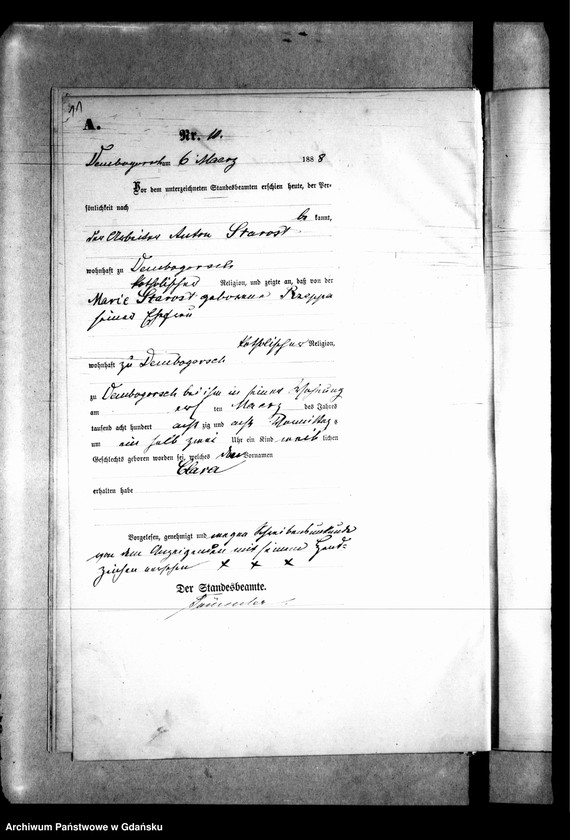 A.
Nr. 10.
Dembogorsch am 6 Maerz 1888
Vor dem unterzeichneten Standesbeamten erschien heute, der Per-
sönlichkeit nach
be kannt,
der Arbeiter Anton Starost
wohnhaft zu Dembogorsch
katholischer Religion, und zeigte an, daß von der
Marie Starost geborene
seiner Ehefrau
katholischer Religion,
wohnhaft zu Dembogorsch
zu Dembogorsch bei ihm in seiner Wohnung
am den Maerz des Jahres
tausend acht hundert acht zig und acht
um ein halb zwei Uhr ein Kind weib lichen
Geschlechts geboren worden sei, welches den Vornamen
Clara
erhalten habe
Vorgelesen, genehmigt und wegen Schreibensunkunde
von dem Anzeigenden mit seinem Hand-
zeichen versehen x x x
Der Standesbeamte.
Archiwum Państwowe w Gdańsku